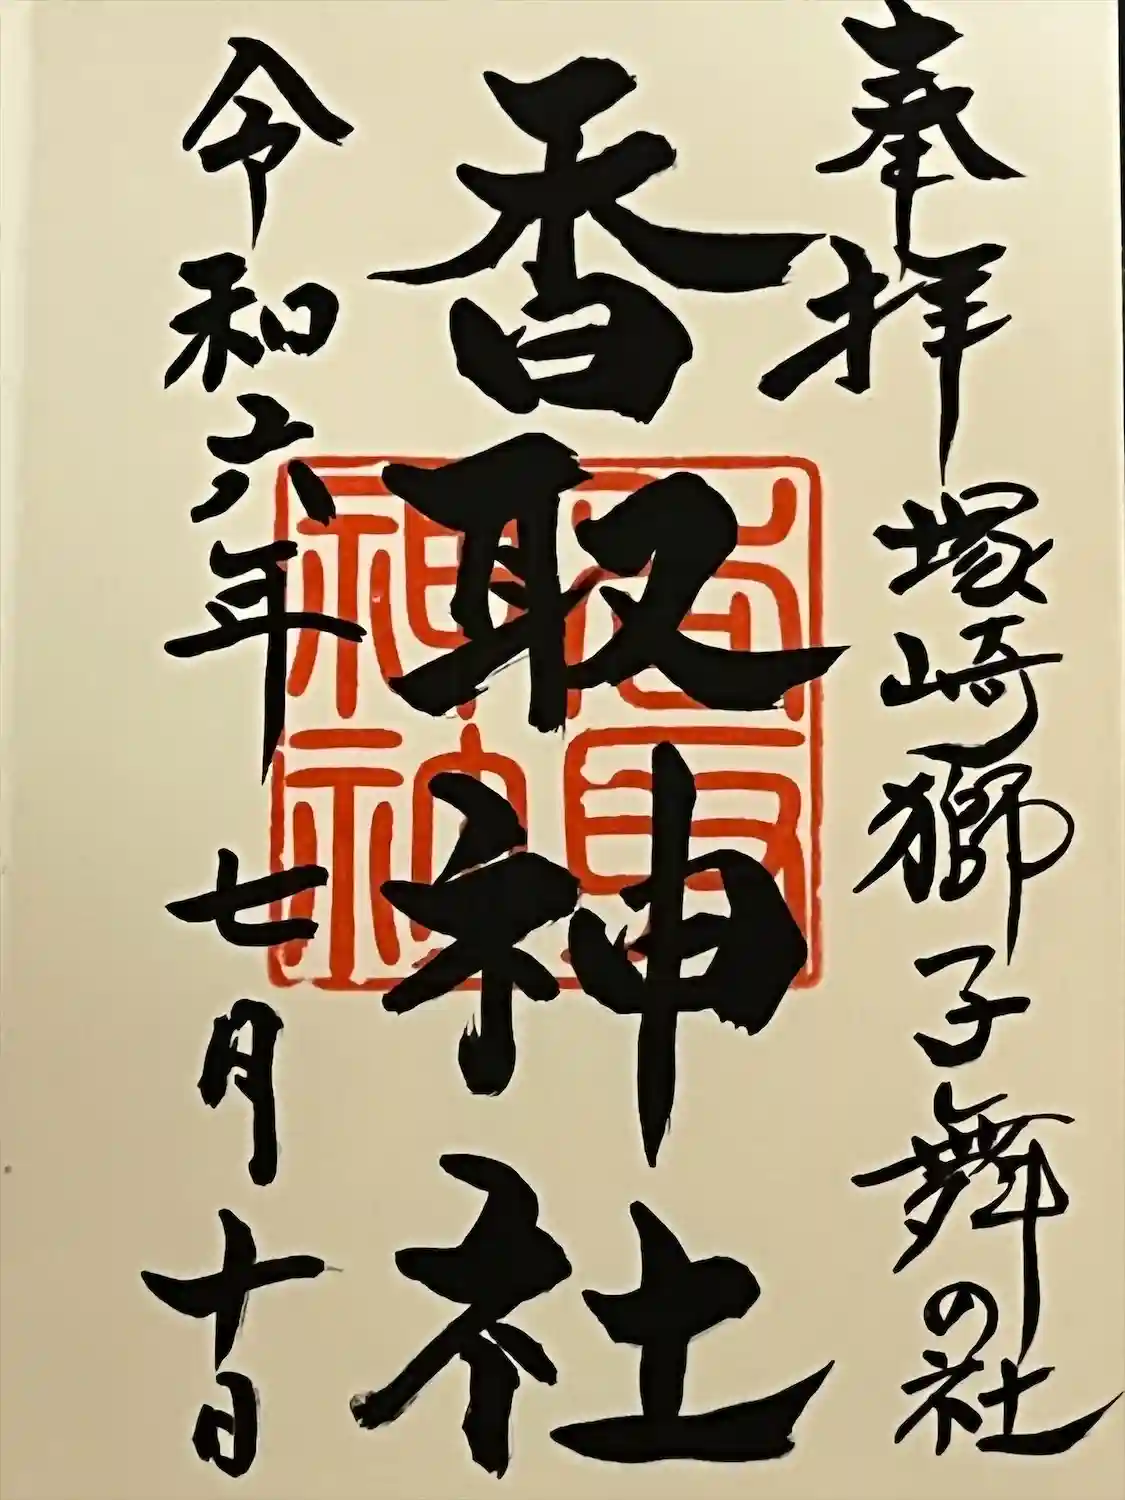 奉拝 塚崎獅子舞の社
香取神社
令和六年七月十日
香取
神社